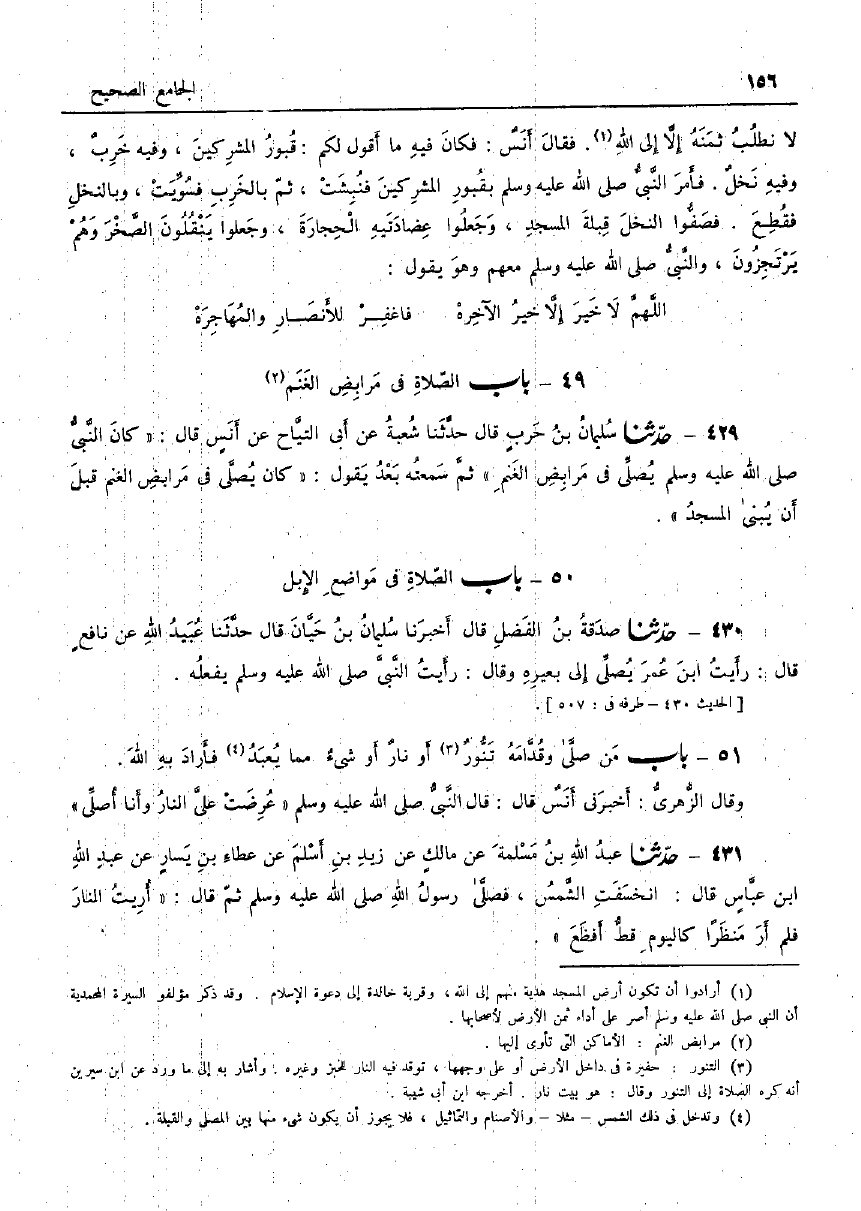 ١٥٦ الجامع الصحيح
لا نطلُبُ ثمنَهُ إلَّا إلى اللهِ(١). فقالَ أنَسٌ : فكانَ فيهِ ما أقول لكم : قُبورُ المشرِكينَ ، وفيه خَرِبٌ ،
وفيهِ نَخلٌ . فأمرَ النَّبيُّ صلى الله عليه وسلم بقُبورِ المشركينَ فنُبِشَتْ ، ثمّ بالخَرِبِ فسُوِّيَتْ ، وبالنخلِ
فقُطِعَ . فصَفُّوا النخلَ قِبلةَ المسجدِ ، وَجَعلُوا عِضادَتَيهِ الْحِجارَةَ ، وجعلوا يَنْقُلُونَ الصَّخْرَ وَهُمْ
يَرْتَجِزُونَ ، والنَّبيُّ صلى الله عليه وسلم معهم وهوَ يقول :
اللَّهمَّ لَا خَيرَ إلَّا خيرُ الآخِرهْ فاغفِرْ للأنصَارِ والمُهَاجِرَهْ
٤٩ – باب الصّلاةِ فى مَرابِضِ الغَنَم(٢)
٤٢٩ – حدّثنا سُليمانُ بنُ حَربٍ قال حدَّثَنا شُعبةُ عن أبى التياَّح عن أنَسٍ قال : « كانَ النَّبيُّ
صلى الله عليه وسلم يُصلِّى فى مَرابِضِ الغَنمِ » ثمَّ سَمعتُه بَعْدُ يَقول : « كان يُصلَّى فى مَرابضِ الغنم قبلَ
أن يُبنىٰ المسجدُ » .
٥٠ – باب الصّلاةِ فى مَواضعِ الإبل
٤٣٠ – حدّثنا صدَقةُ بنُ الفَضلِ قال أخبرَنا سُليمانُ بنُ حَيَّانَ قال حدَّثَنا عُبَيدُ اللهِ عن نافعٍ
قال : رأَيتُ ابنَ عُمرَ يُصلِّى إلى بعيرِهِ وقال : رأَيتُ النَّبيَّ صلى الله عليه وسلم يفعلُه .
[ الحديث ٤٣٠ – طرفه فى : ٥٠٧ ] .
٥١ – باب مَن صلَّىٰ وقُدَّامَهُ تَنُّورٌ(٣) أو نارٌ أو شىءٌ مما يُعبَدُ(٤) فأرادَ بهِ اللهَ .
وقال الزُّهرىُّ : أخبرَنى أنَسٌ قال : قال النَّبيُّ صلى الله عليه وسلم « عُرِضَتْ علىَّ النارُ وأنا أُصلِّى»
٤٣١ – حدّثنا عبدُ اللهِ بنُ مَسْلمةَ عن مالكٍ عن زيدِ بنِ أَسْلمَ عن عطاءِ بنِ يَسارٍ عن عبدِ اللهِ
ابن عبَّاسٍ قال : انخسَفَتِ الشَّمسُ ، فصلَّىٰ رسولُ اللهِ صلى الله عليه وسلم ثمّ قال : « أُرِيتُ النارَ
فلم أَرَ مَنظَرًا كاليوم قطُّ أفظَعَ » .
(١) أرادوا أن تكون أرض المسجد هدية منهم إلى الله ، وقربة خالدة إلى دعوة الإسلام . وقد ذكر مؤلفو السيرة المحمدية
أن النبى صلى الله عليه وسلم أصر على أداء ثمن الأرض لأصحابها .
(٢) مرابض الغنم : الأماكن التى تأوى إليها .
(٣) التنور : حفيرة فى داخل الأرض أو على وجهها ، توقد فيه النار للخبز وغيره . وأشار به إلى ما ورد عن ابن سيرين
أنه كره الصلاة إلى التنور وقال : هو بيت نار . أخرجه ابن أبى شيبة .
(٤) وتدخل فى ذلك الشمس – مثلا – والأصنام والتماثيل ، فلا يجوز أن يكون شىء منها بين المصلى والقبلة .